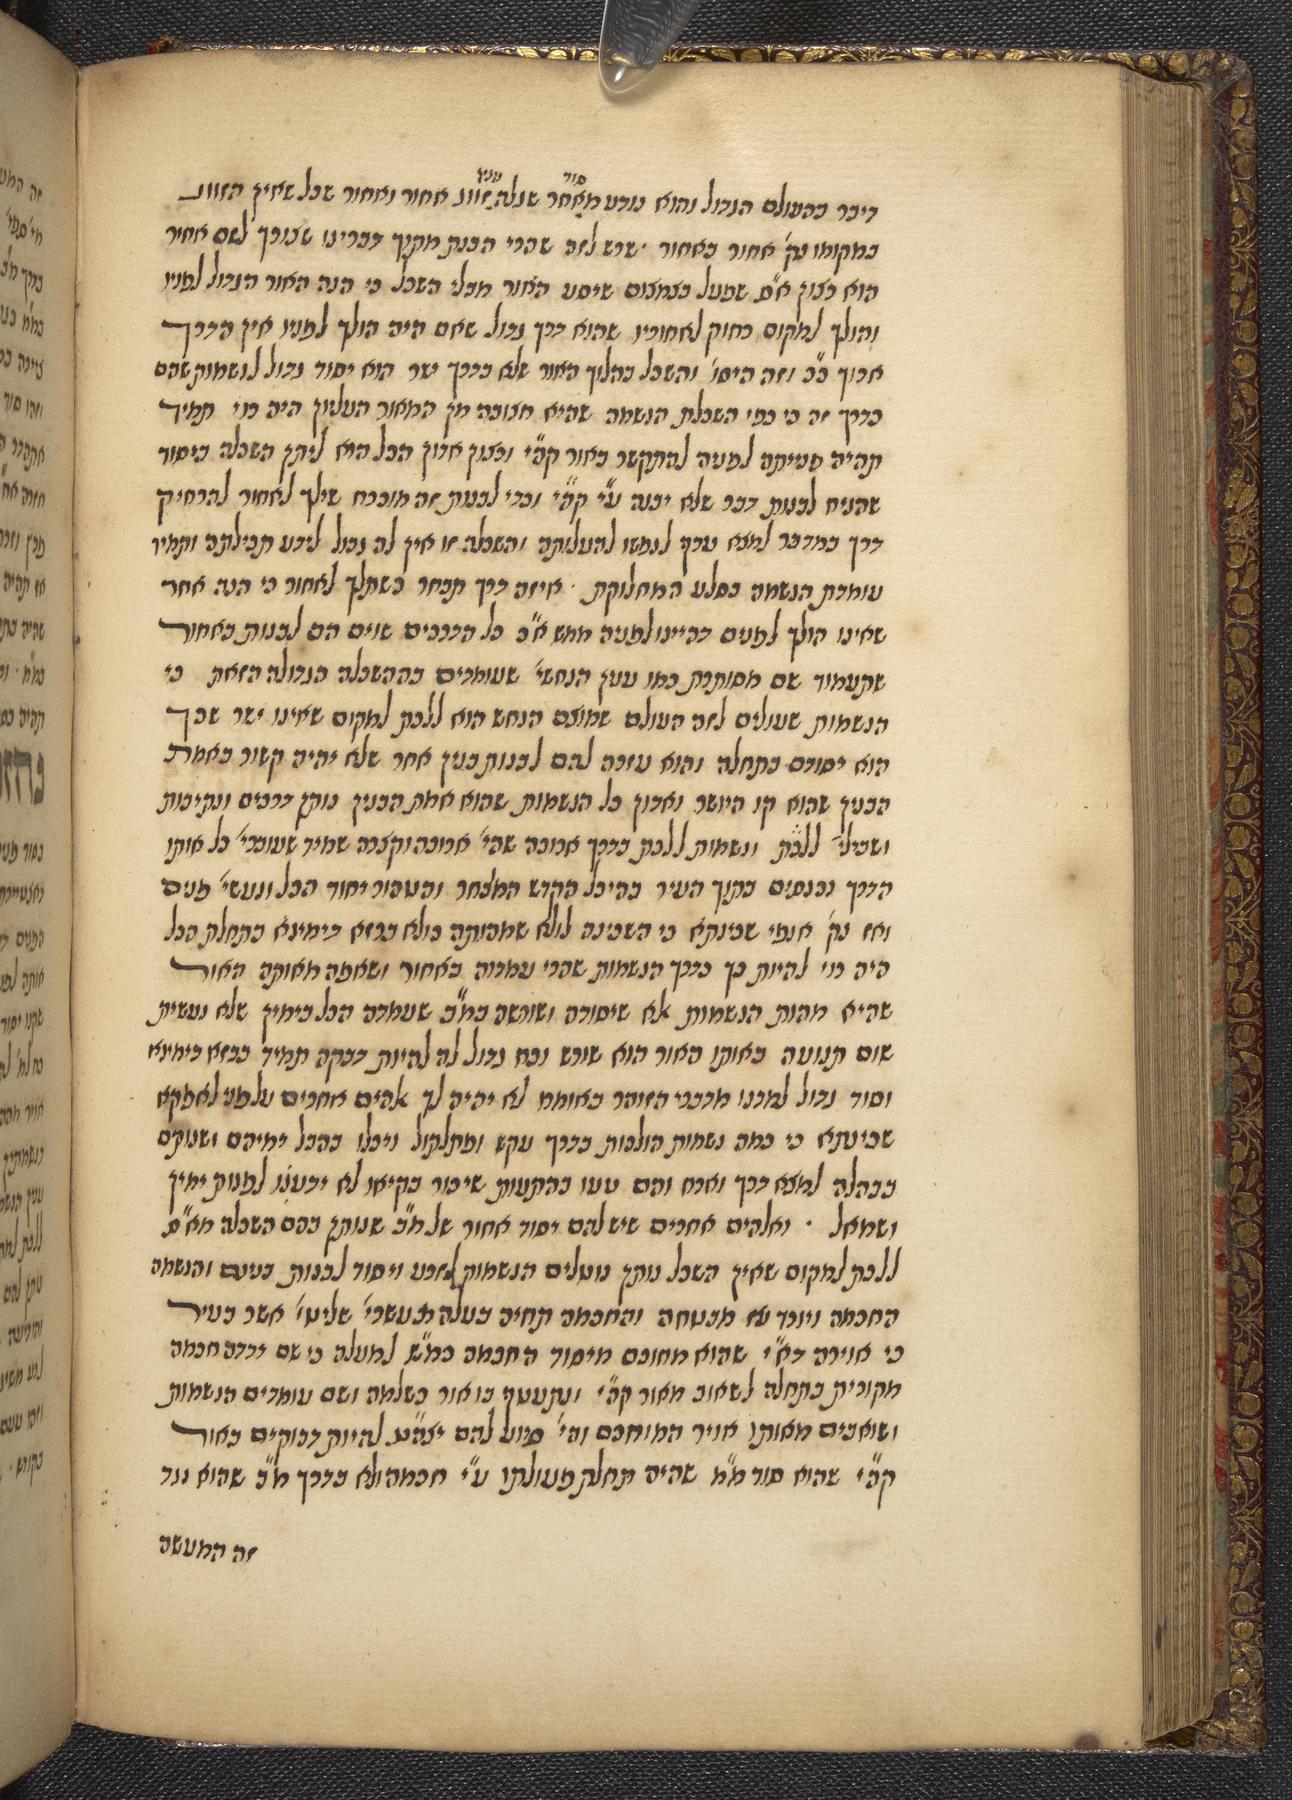 דיבר בהעולם הגדול והוא נודע מאחר סוד שגלה ענין זווג אחור ואחור שכל שאין הזווג
במקומו נק' אחור באחור ׳ שרש לזה שהרי הבנת מתוך דברינו שצורך לשם אחור
הוא רצון א"ס שפעל בצמצום שיסע האור מבלי השכל כי הנה האור הגדול לפניו
והולך למקום רחוק לאחוריו שהוא דרך גדול שאם היה הולך לפניו אין הדרך
ארוך כ"כ וזה היסו' והשכל בהלוך האור שלא כדרך ישר הוא יסוד גדול לנשמות שהם
כדרך זה כי כפי השכלת הנשמה שהיא חצובה מן המאור העליון היה ראוי תמיד
תהיה פנייתה לפניה להתקשר באור קה"י ורצון אדון הכל הוא ליתן השכלה ביסוד
שהניח לבנות דבר שלא יבנה ע"י קה"י וכדי לבנות זה מוכרח שילך לאחור להרחיק
דרך במדבר למצא טרף לנפשו להעלותה והשכלה זו אין לה גבול לידע תכילתה ותמיד
עומדת הנשמה בסלע המחלוקת ׳ איזה דרך תבחר כשתלך לאחור כי הנה אחר
שאינו הולך לפנים דהיינו לפניה ממש א"כ כל הדרכים שוים הם לבנות באחור
שתעמוד שם מסותרת כמו ענין הנחשי' שעומדים בההשכלה הגדולה הזאת כי
הנשמות שעולים לזה העולם שמוצם הנחש הוא ללכת למקום שאינו ישר שכך
הוא יסודם בתחלה והוא עזרה להם לבנות בנין אחר שלא יהיה קשור באמת
הבנין שהוא קו היושר ואדון כל הנשמות שהוא אמת הבנין נותן דרכים ונתיבות
ושבילי' ללכת ונשמות ללכת בדרך ארוכה שהי' ארוכה וקצרה שמיד שעוברי' כל אותו
הדרך נכנסים בתוך העיר בהיכל הקדש המובחר והטהור יחוד הכל ונעשי' פנים
ואז נק' אנפי שכינתא כי השכינה לולא שמהותה כולא ברזא דימינא בתחלת הכל
היה ראוי להיות כך כדרך הנשמות שהרי עמדה באחור ושאפה מאותה האור
שהיא מהות הנשמות אלא שיסודה ושורשה במ"ב שעמדה הכל בימין שלא נעשית
שום תנועה באותו האור הוא שורש וכח גדול לה להיות דבקה תמיד ברזא דימינא
וסוד גדול למדנו מדברי הזוהר באומ' לא יהיה לך אלהים אחרים על פני לאפקא
שכינתא כי כמה נשמות הולכות בדרך עקש ופתלתול ויכלו בהבל ימיהם ושנותם
בבהלה למצא דרך וארח והם טעו כהתעות שיכור בקיאו לא ידענו לפנות ימין
ושמאל ׳ ואלהים אחרים שיש להם יסוד אחור של מ"ב שנותן בהם השכלה מא"ס
ללכת למקום שאין השכל נותן נוטלים הנשמות לזרע ויסוד לבנות והנשמה
החכמה ויורד עז מבטחה והחכמה תחיה בעלה שליטי' אשר בעיר
כי אוירה דא"י שהוא מחוכם מיסוד החכמה כמ"ש למעלה כי שם ירדה חכמה
מקורית בתחלה לשאוב מאור קה"י ונתעטף בו אור כשלמה ושם עומדים הנשמות
ושואבים מאותו אויר המוחכם וה' סיוע להם להיות דבוקים באור
קה"י שהוא סוד מ"מ שהיה תחלת פעולתו ע"י חכמה ולא כדרך מ"ב שהוא נגד
זה המעשה